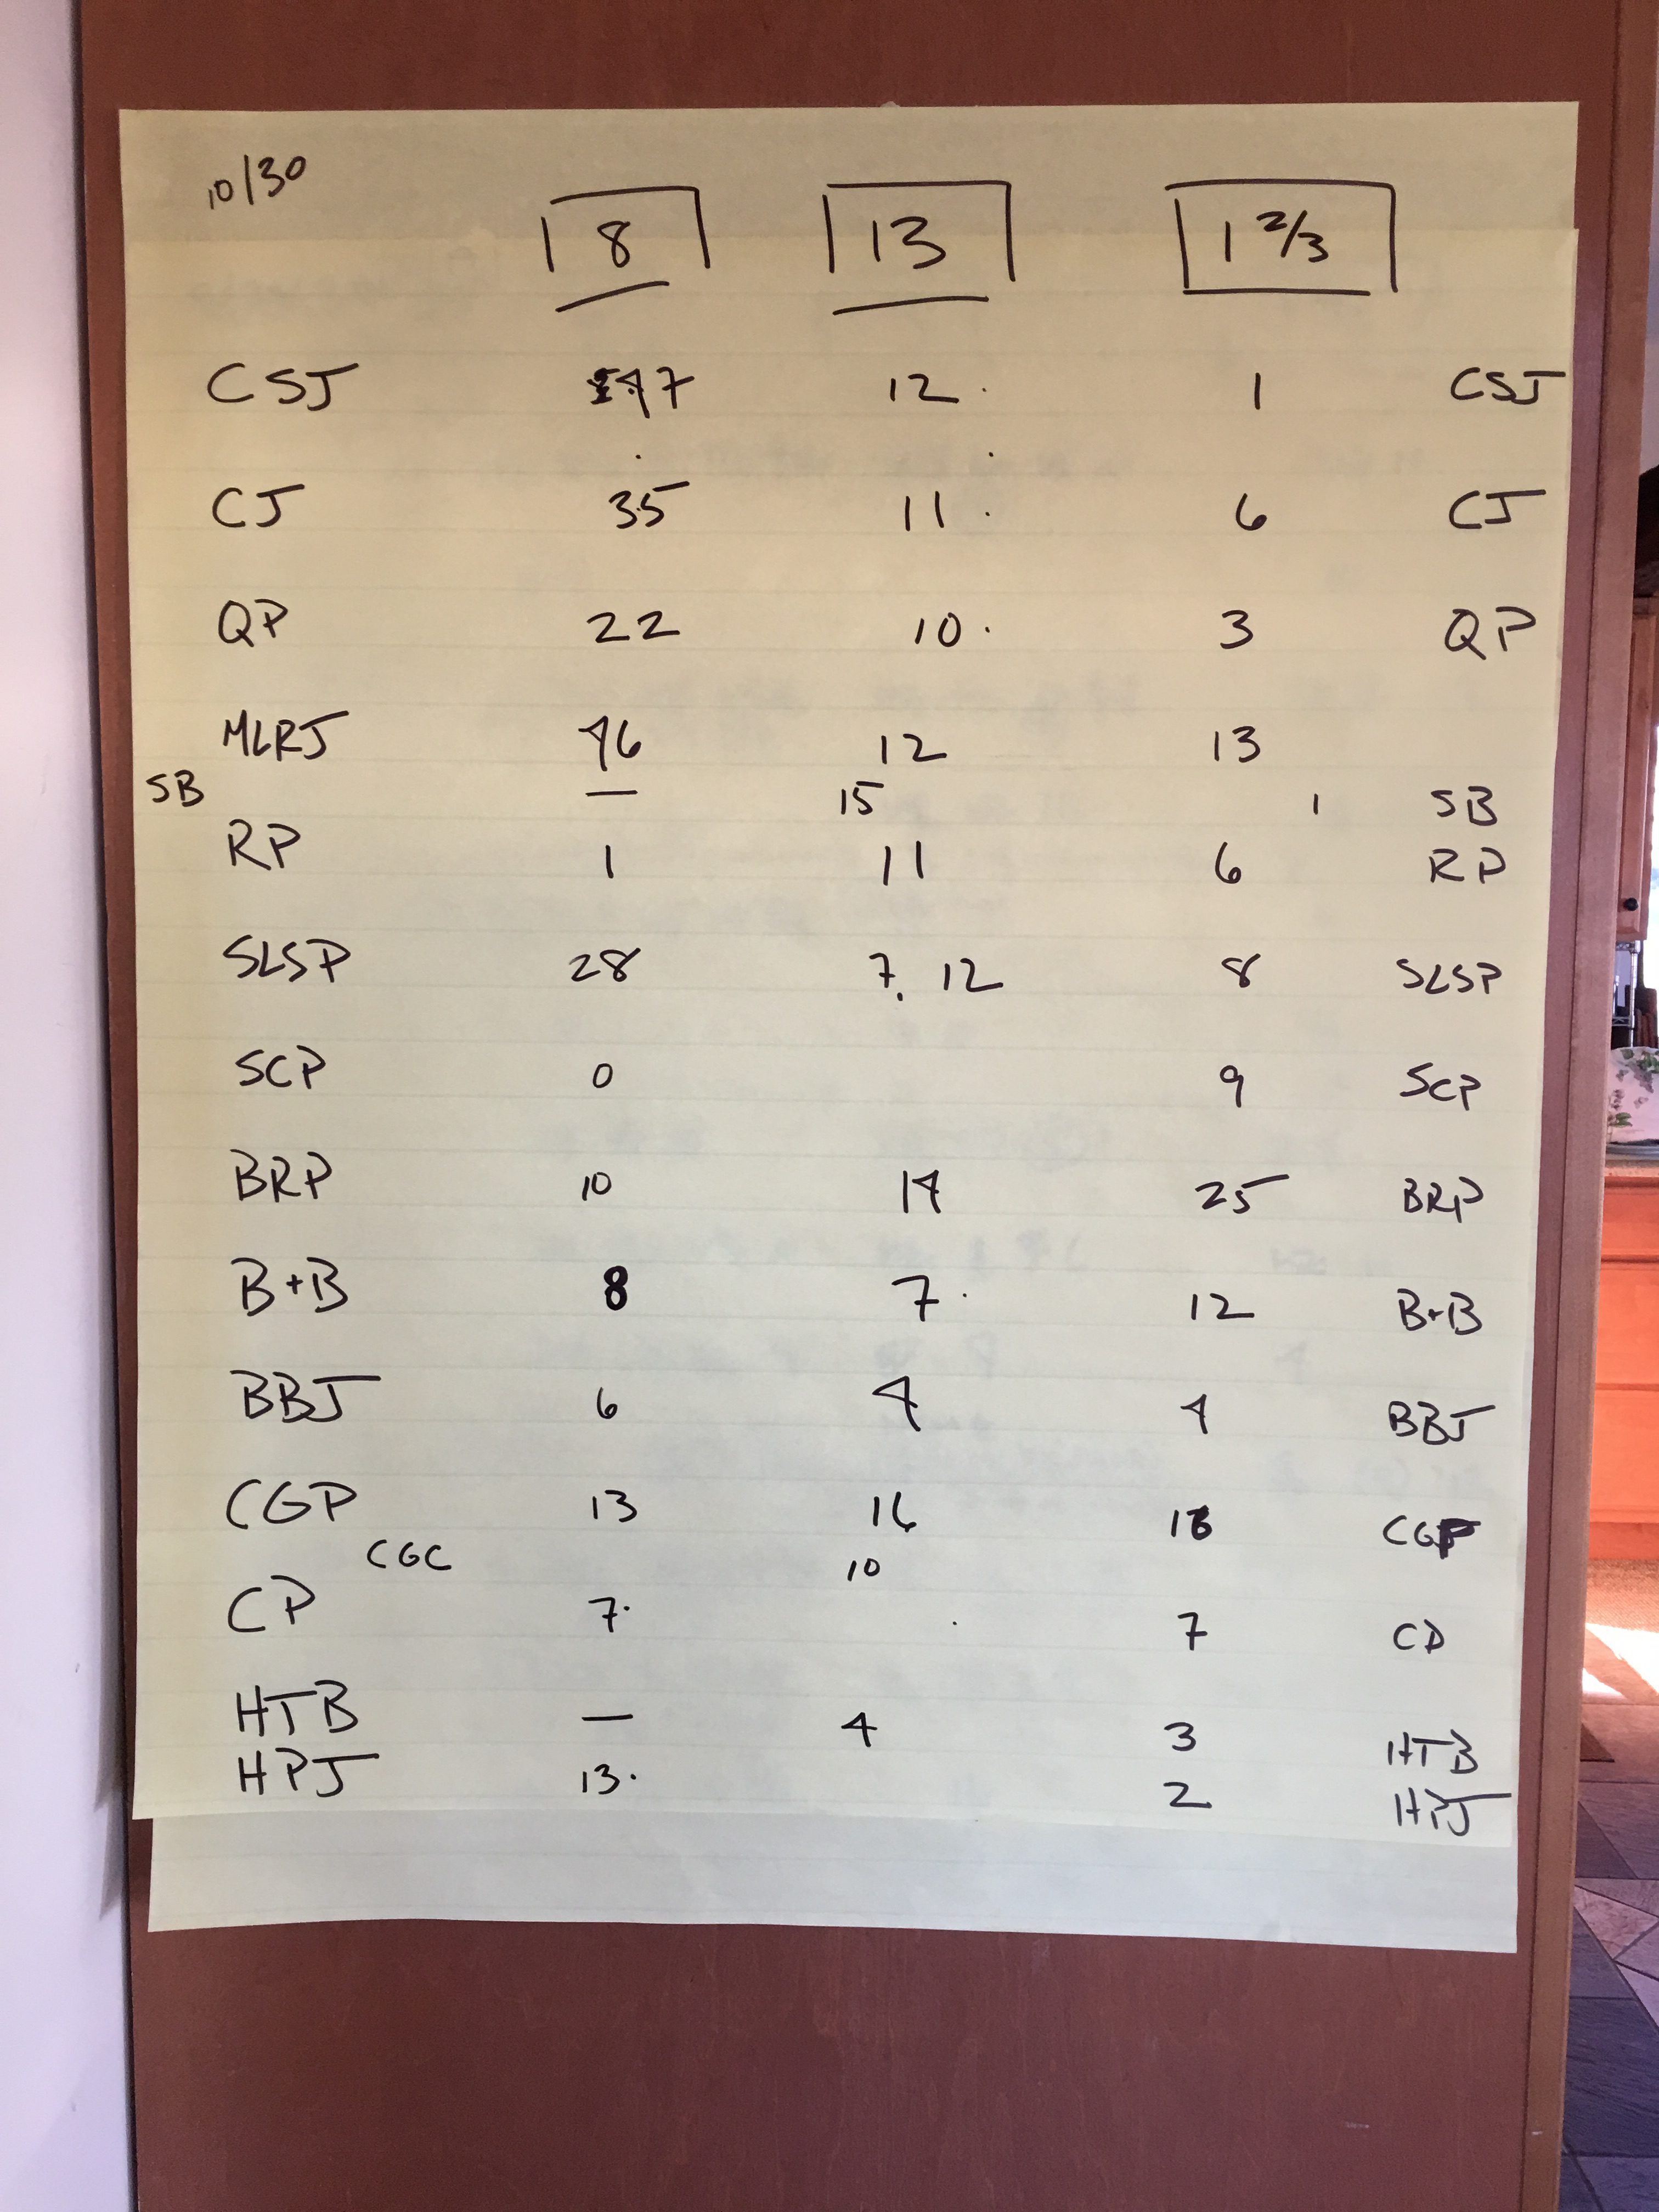 10/30
8 13 1 2/3
CSJ 47 12 1 CSJ
CJ 35 11 6 CJ
QP 22 10 3 QP
MLRJ 46 12 13
SB — 15 1 SB
RP 1 11 6 RP
SLSP 28 7, 12 8 SLSP
SCP 0 9 SCP
BRP 10 14 25 BRP
B+B 8 7 12 B+B
BBJ 6 4 4 BBJ
CGP 13 16 CGP
CGC 10
CP 7 7 CP
HTB — 4 3 HTB
HPJ 13 2 HPJ